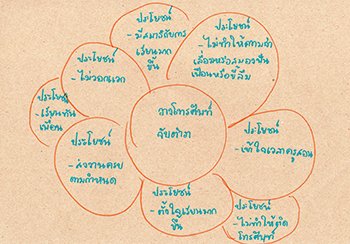 วางโทรศัพท์
จับตำรา
ประโยชน์
- มีสมาธิกับการ
เรียนมาก
ขึ้น
ประโยชน์
- ไม่ทำให้ความจำ
เสื่อมหรือสมองฟั่น
เฟือนหรือขี้ลืม
ประโยชน์
- เข้าใจเวลาครูสอน
ประโยชน์
- ไม่ทำให้ติด
โทรศัพท์
ประโยชน์
- ตั้งใจเรียนมาก
ขึ้น
ประโยชน์
- ส่งงานครบ
ตามกำหนด
ประโยชน์
- เรียนทัน
เพื่อน
ประโยชน์
- ไม่วอกแวก